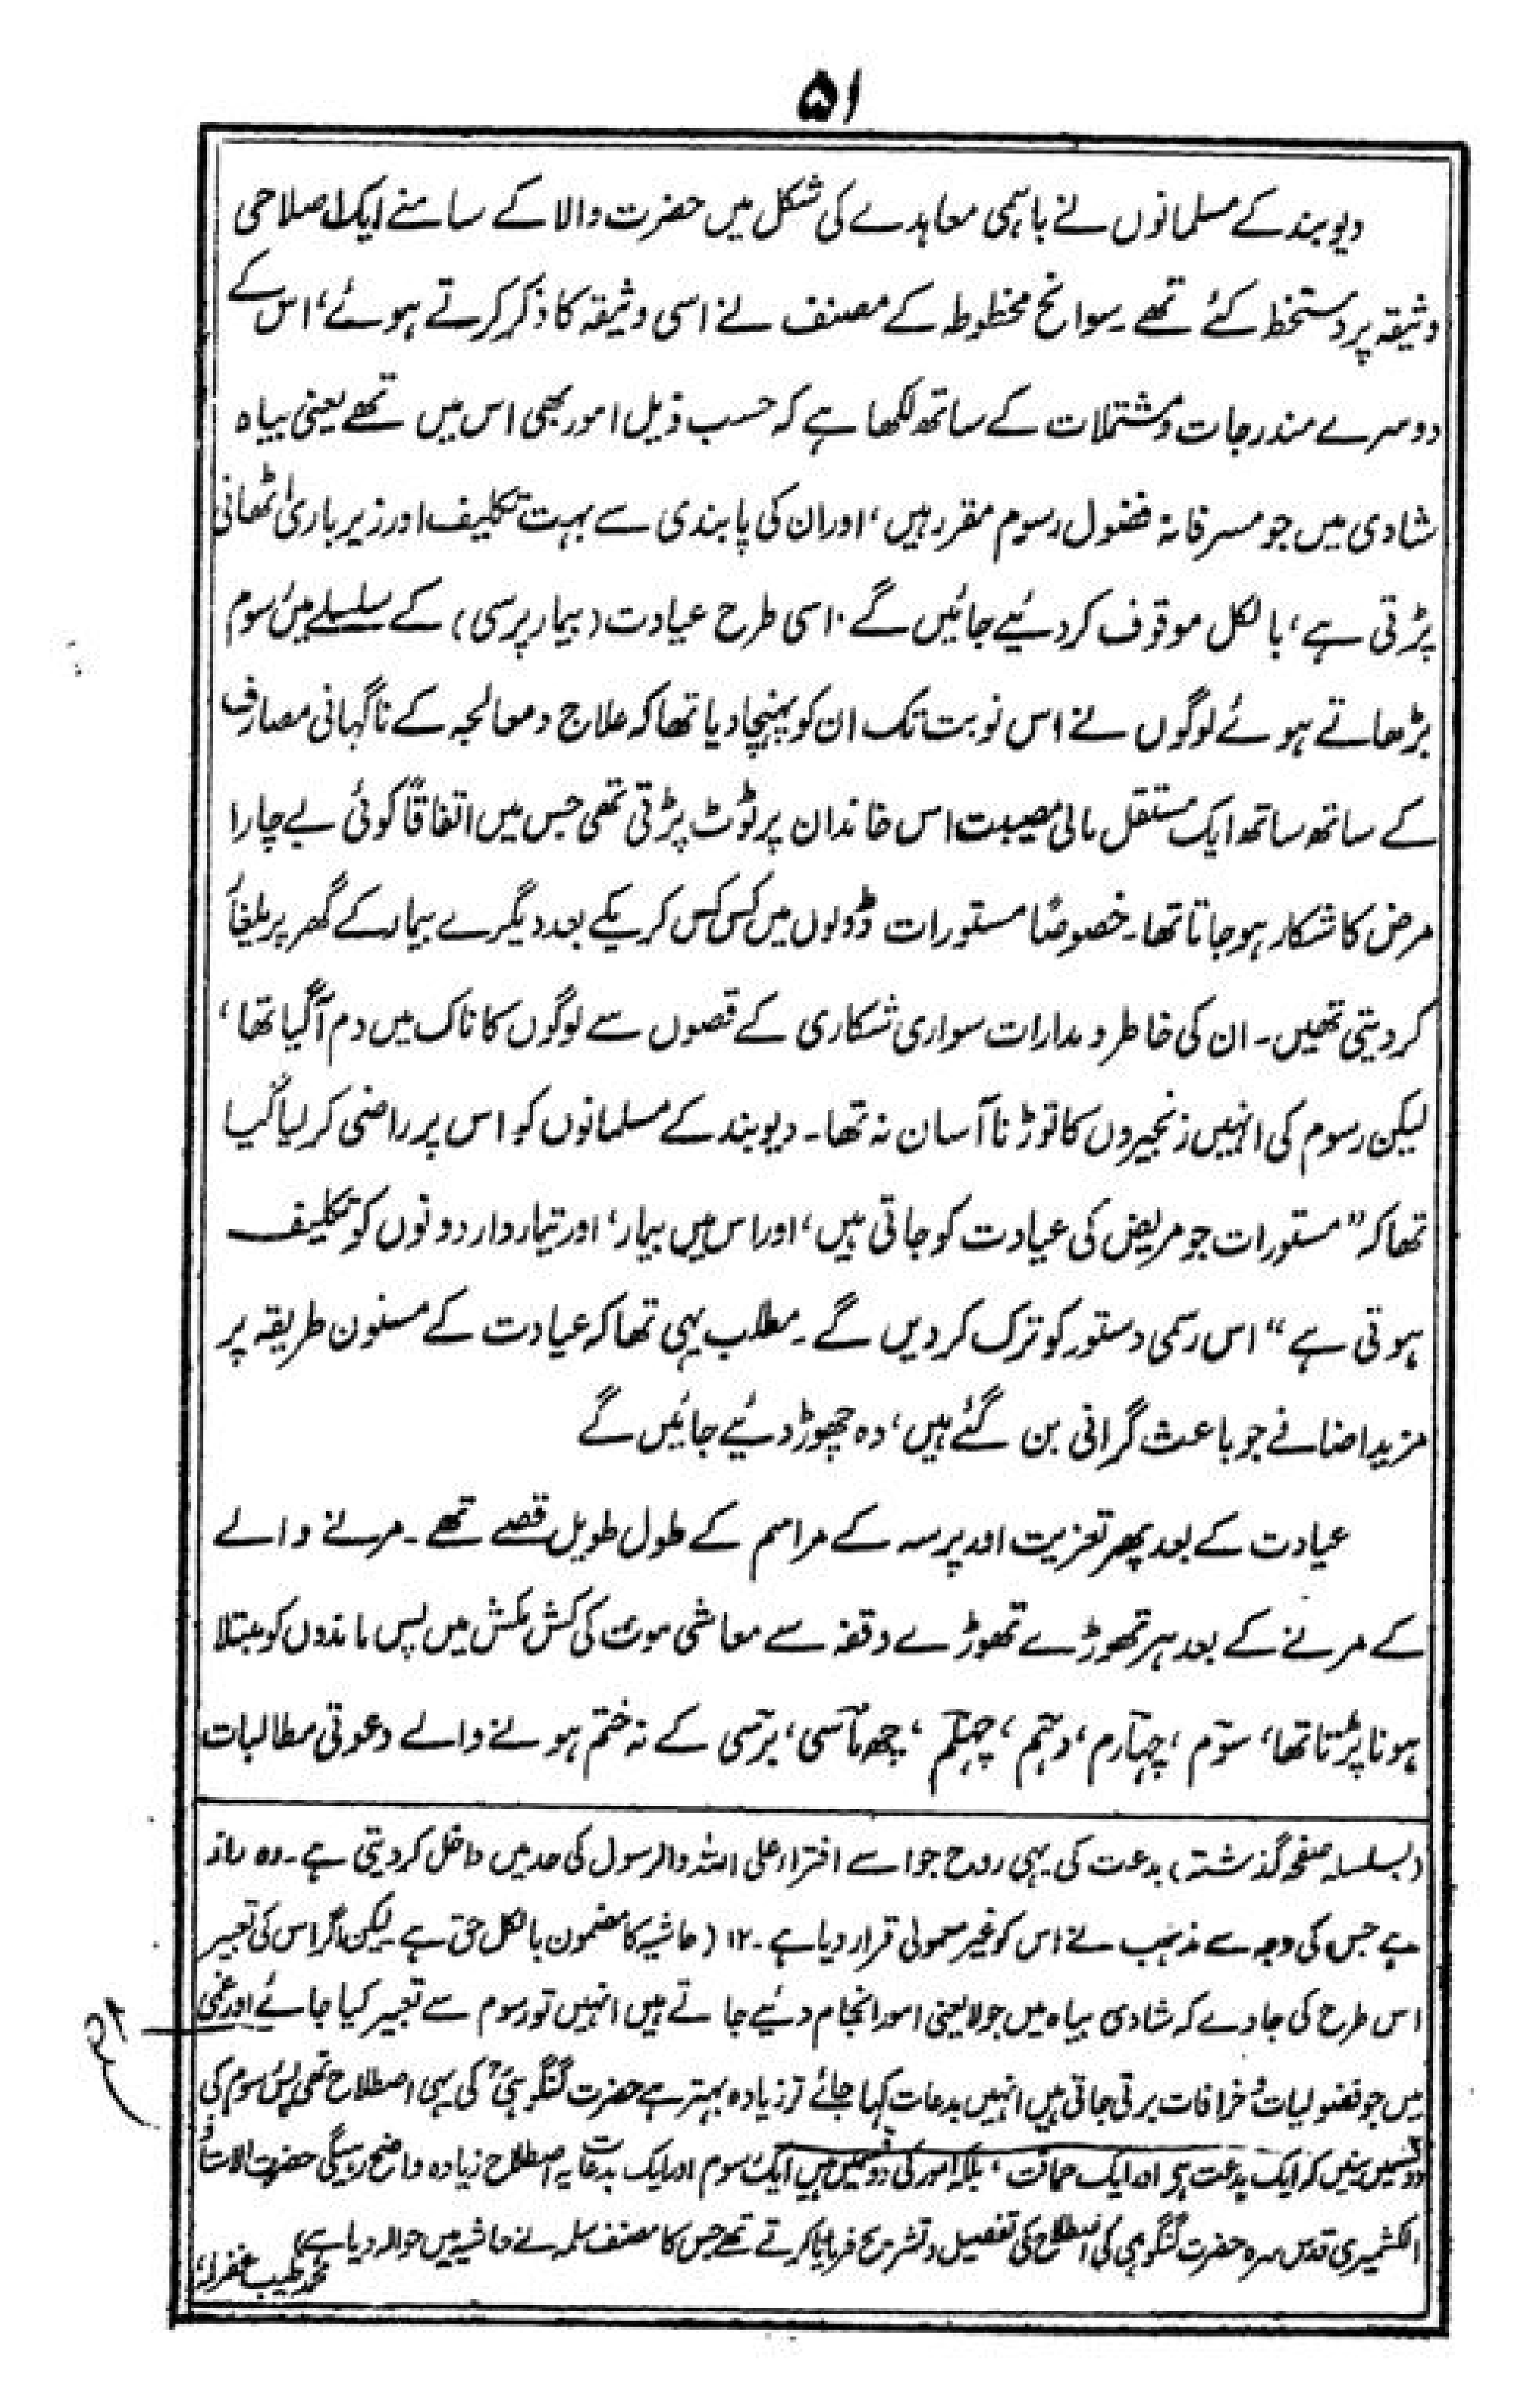 ۵۱
دیوبند کے مسلمانوں نے باہمی معاہدے کی شکل میں حضرت والا کے سامنے ایک اصلاحی
وثیقہ پر دستخط کئے تھے۔ سوانح مخطوطہ کے مصنف نے اسی وثیقہ کا ذکر کرتے ہوئے، اس کے
دوسرے مندرجات و مشتملات کے ساتھ لکھا ہے کہ حسب ذیل امور بھی اس میں تھے یعنی بیاہ
شادی میں جو مسرفانہ فضول رسوم مقرر ہیں، اور ان کی پابندی سے بہت تکلیف اور زیر باری اٹھانی
پڑتی ہے، بالکل موقوف کر دئیے جائیں گے۔ اسی طرح عیادت (بیمار پرسی) کے سلسلے میں رسوم
بڑھاتے ہوئے لوگوں نے اس نوبت تک ان کو پہنچا دیا تھا کہ علاج و معالجہ کے ناگہانی مصارف
کے ساتھ ساتھ ایک مستقل مالی مصیبت اس خاندان پر ٹوٹ پڑتی تھی جس میں اتفاقاً کوئی بے چارا
مرض کا شکار ہو جاتا تھا۔ خصوصاً مستورات ڈولوں میں کس کس کر یکے بعد دیگرے بیمار کے گھر پر یلغار
کر دیتی تھیں۔ ان کی خاطر و مدارات سواری شکاری کے قصوں سے لوگوں کا ناک میں دم آ گیا تھا،
لیکن رسوم کی انہیں زنجیروں کا توڑنا آسان نہ تھا۔ دیوبند کے مسلمانوں کو اس پر راضی کر لیا گیا
تھا کہ ”مستورات جو مریض کی عیادت کو جاتی ہیں، اور اس میں بیمار، اور تیماردار دونوں کو تکلیف
ہوتی ہے“ اس رسمی دستور کو ترک کر دیں گے۔ مطلب یہی تھا کہ عیادت کے مسنون طریقہ پر
مزید اضافے جو باعث گرانی بن گئے ہیں، وہ چھوڑ دئیے جائیں گے
عیادت کے بعد پھر تعزیت اور پرسہ کے مراسم کے طول طویل قصے تھے۔ مرنے والے
کے مرنے کے بعد ہر تھوڑے تھوڑے وقفہ سے معاشی موت کی کش مکش میں پس ماندوں کو مبتلا
ہونا پڑتا تھا، سوم، چہارم، دہم، چہلم، چھ ماسی، برسی کے نہ ختم ہونے والے دعوتی مطالبات
(بسلسلہ صفحہ گذشتہ) بدعت کی یہی روح جو اسے افتراء علی اللہ والرسول کی حد میں داخل کر دیتی ہے۔ وہ راز
ہے جس کی وجہ سے مذہب نے اس کو غیر معمولی قرار دیا ہے۔ ۱۲ (حاشیہ کا مضمون بالکل حق ہے لیکن اگر اس کی تعبیر
اس طرح کی جاوے کہ شادی بیاہ میں جو لایعنی امور انجام دئیے جاتے ہیں انہیں تو رسوم سے تعبیر کیا جائے اور غمی
میں جو فضولیات و خرافات برتی جاتی ہیں انہیں بدعات کہا جائے تو زیادہ بہتر ہے حضرت گنگوہیؒ کی یہی اصطلاح تھی پس رسوم کی
دو قسمیں نہیں کہ ایک بدعت ہو اور ایک حماقت، بلکہ امور کی دو قسمیں ہیں ایک رسوم اور ایک بدعات یہ اصطلاح زیادہ واضح رہیگی حضرت الاستاذ
الکشمیری قدس سرہ حضرت گنگوہی کی اصطلاح کی تفصیل و تشریح فرمایا کرتے تھے جس کا مصنف سلمہ نے حاشیہ میں حوالہ دیا ہے)
محمد طیب غفرلہ